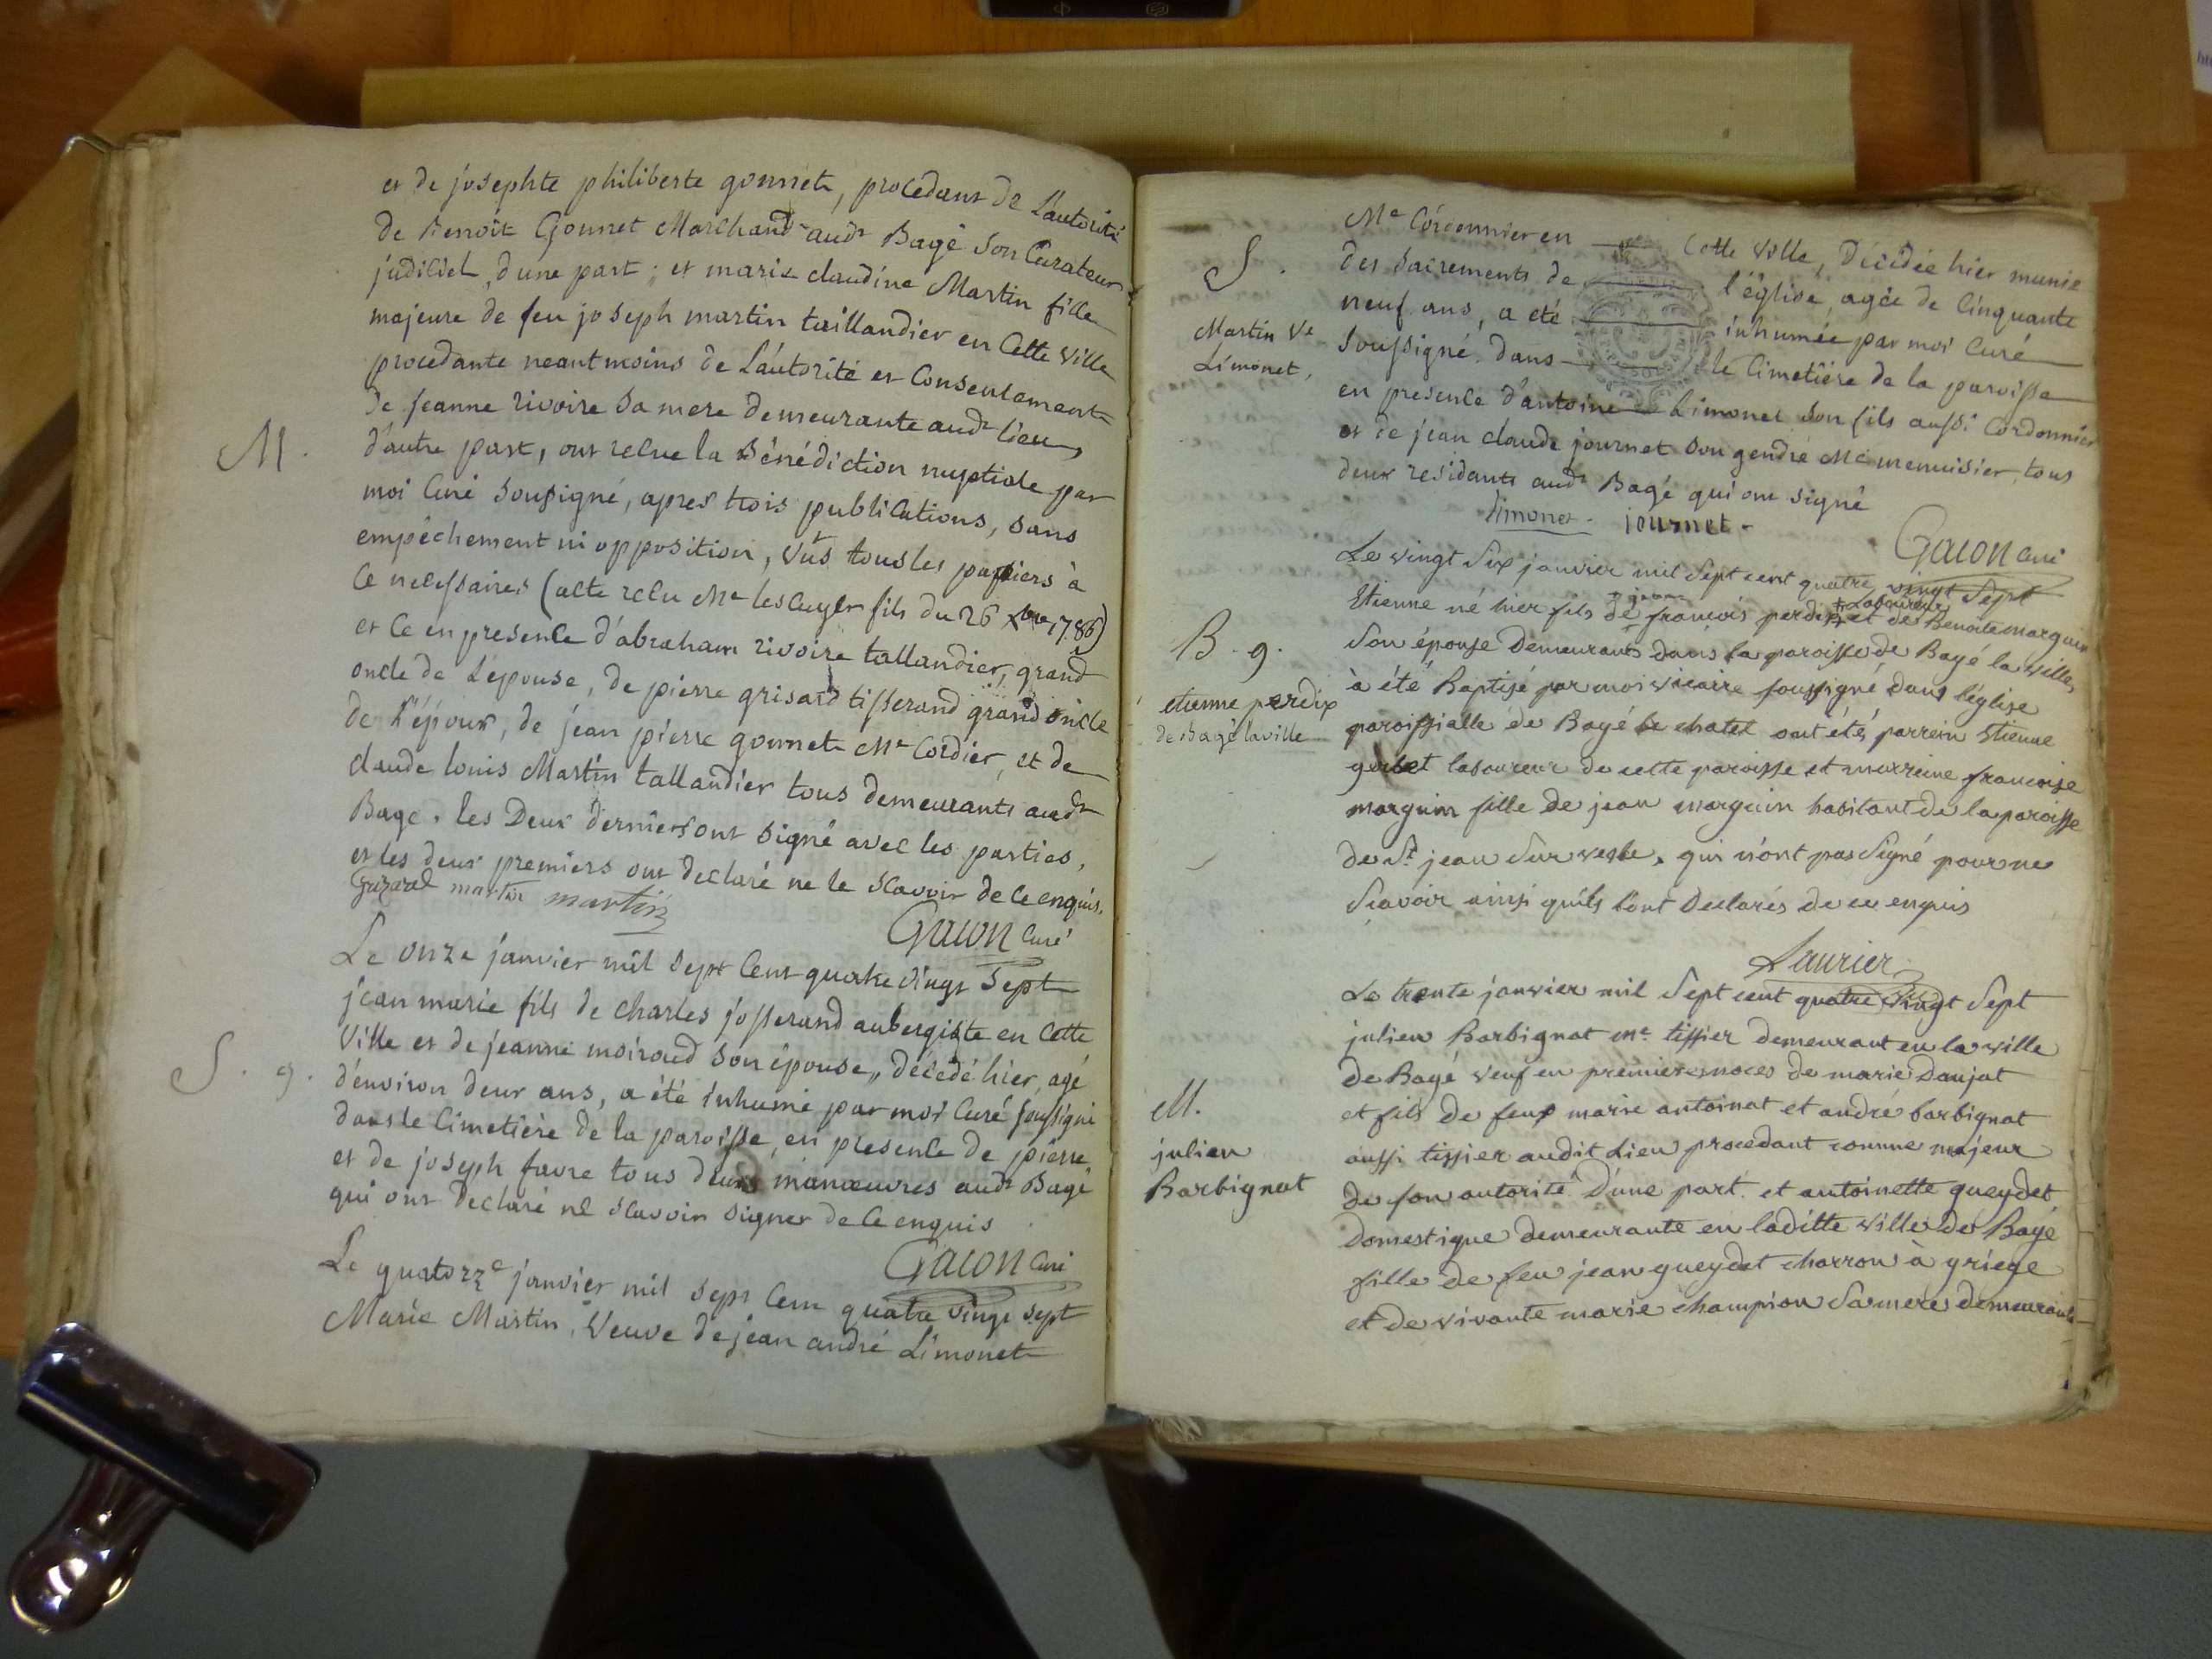 et de josephte philiberte gonnet, procedant de L'autorité
de Benoit Gonnet Marchand audt Bagé son Curateur
judiciel, d'une part; et marie claudine Martin fille
majeure de feu joseph martin taillandier en Cette Ville
procedante neantmoins de L'autorité et Consentement
de jeanne rivoire sa mere demeurante audt lieu
M. d'autre part, ont recue la Bénédiction nuptiale par
moi Curé Sousigné, apres trois publications, sans
empêchement ni opposition, Vûs tous les papiers à
Ce necessaires (acte recu Me lescuyer fils du 26 Xbre 1786)
et Ce en presence d'abraham rivoire tallandier, grand
oncle de L'epouse, de pierre grisard tisserand grand oncle
de l'époux, de jean pierre gonnet Me Cordier, et de
claude louis Martin tallandier tous demeurants audt
Bagé. les Deux derniers ont signé avec les parties,
et les deux premiers ont declaré ne le scavoir de ce enquis.
martin martin
Gacon Curé
Le onze janvier mil sept Cent quatre vingt Sept
jean marie fils de charles josserand aubergiste en Cette
Ville et de jeanne moiroud son épouse, décédé hier, agé
S. g. d'environ deux ans, a été inhumé par moi Curé soussigné
dans le Cimetière de la paroisse, en presence de pierre
et de joseph favre tous deux manœuvres audt Bagé
qui ont declaré ne scavoir signer de ce enquis
Gacon Curé
Le quatorze janvier mil sept Cent quatre vingt sept
Marie Martin, Veuve de jean andré Limonet
Me Cordonnier en Cette Ville, Décédée hier munie
S. des Sacrements de l'église, agée de Cinquante
neuf ans, a été inhumée par moi Curé
Martin Ve
Limonet,
Soussigné dans le Cimetière de la paroisse
en presence d'antoine Limonet son fils aussi Cordonnier
et de jean claude journet son gendre Me menuisier, tous
deux residants audt Bagé qui ont signé
limonet journet
Gacon Curé
Le vingt six janvier mil sept cent quatre vingt sept
Etienne né hier fils de françois perdix et de Benoite marguin
Laboureur
B. g. son épouse demeurants dans la paroisse de Bagé la ville
etienne perdix
de Bagé la ville
à été Baptisé par moi vicaire soussigné dans l'église
paroissialle de Bagé le chatel ont étés parrein Etienne
laboureur de cette paroisse et marreine francoise
marguin fille de jean marguin habitant de la paroisse
de St jean sur vesle, qui n'ont pas signé pour ne
scavoir ainsi quils l'ont declarés de ce enquis
Laurier
Le trente janvier mil sept cent quatre vingt sept
julien Barbignat me tissier demeurant en la ville
de Bagé veuf en premieres noces de marie Danjat
M.
julien
Barbignat
et fils de feux marie antoinat et andré barbignat
aussi tissier audit Lieu procedant comme majeur
de son autorité d'une part. et antoinette gueydet
Domestique demeurante en laditte ville de Bagé
fille de feu jean gueydet charron à griege
et de vivante marie champion sa mere demeurante